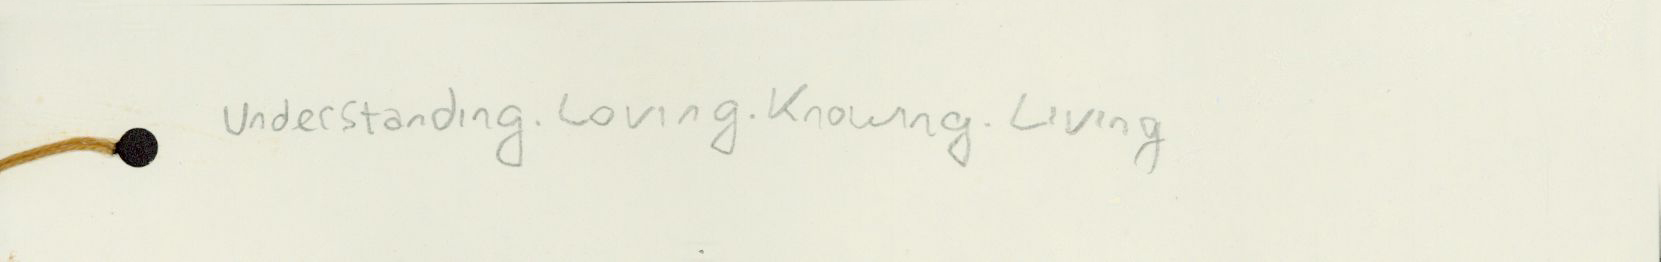 Understanding. Loving. Knowing. Living